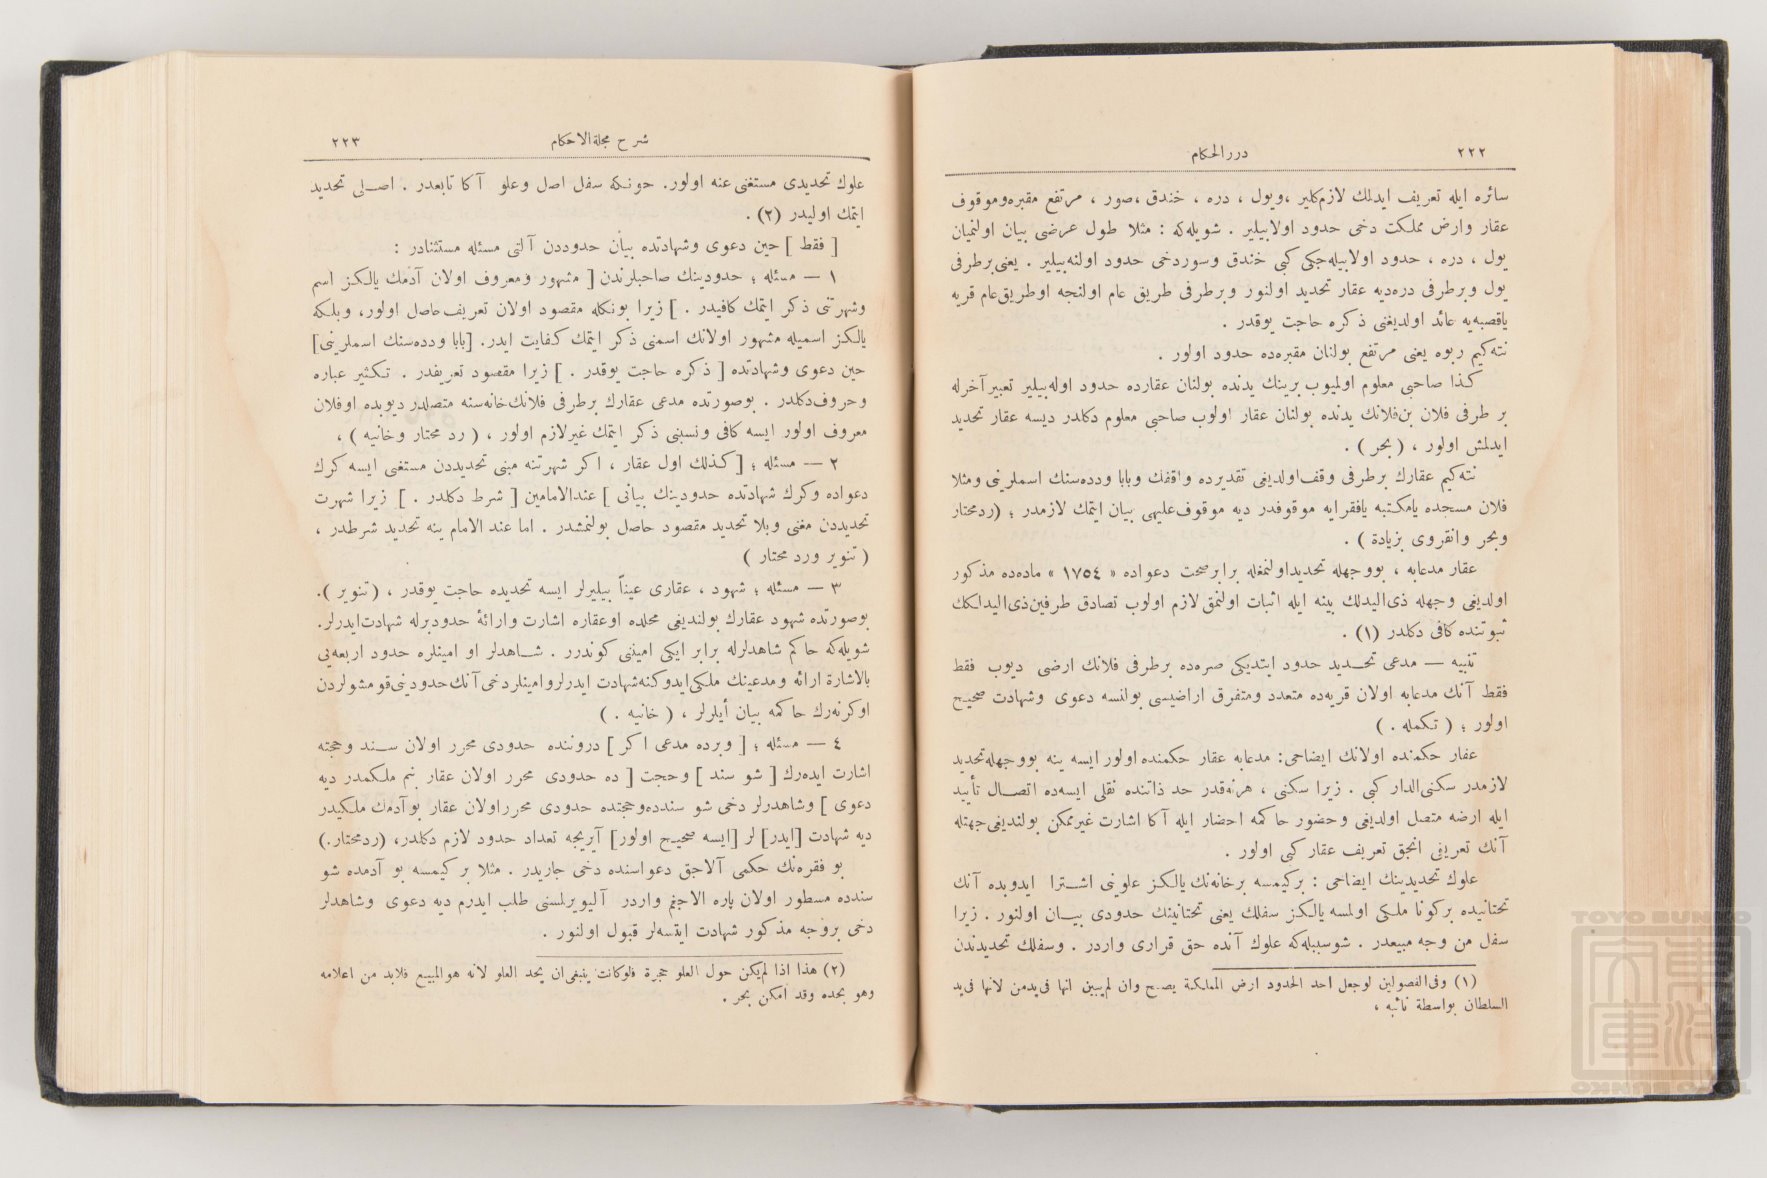 ٢٢٢
درر الحكام
سائره ايله تعريف ايدلمك لازم كلير ، ويول ، دره ، خندق ، صور ، مرتفع مقبره وموقوف
عقار وارض مملكت دخی حدود اولابيلير . شويله كه : مثلا طول عرضی بيان اولنميان
يول ، دره ، حدود اولابيله جكی كبی خندق وسوردخی حدود اولنه بيلير . يعنی برطرفی
يول وبرطرفی دره ديه عقار تحديد اولنور وبرطرفی طريق عام اولنجه اوطريق عام قريه
ياقصبه يه عائد اولديغنی ذكره حاجت يوقدر .
نته كيم ربوه يعنی مرتفع بولنان مقبره ده حدود اولور .
كذا صاحبی معلوم اولميوب برينك يدنده بولنان عقارده حدود اوله بيلير تعبير آخرله
بر طرفی فلان بن فلانك يدنده بولنان عقار اولوب صاحبی معلوم دكلدر ديسه عقار تحديد
ايدلمش اولور ، ( بحر ) .
نته كيم عقارك برطرفی وقف اولديغی تقديرده واقفك وبابا ودده سنك اسملرينی ومثلا
فلان مسجده يامكتبه يافقرايه موقوفدر ديه موقوف عليهی بيان ايتمك لازمدر ؛ ( ردمختار
وبحر وانقروی بزيادة ) .
عقار مدعابه ، بووجهله تحديداولنمغله برابر صحت دعواده « ١٧٥٤ » ماده ده مذكور
اولديغی وجهله ذی اليدلك بينه ايله اثبات اولنمق لازم اولوب تصادق طرفين ذی اليدلكك
ثبوتنده كافی دكلدر (١) .
تنبيه — مدعی تحديد حدود ايتديكی صره ده برطرفی فلانك ارضی ديوب فقط
فقط آنك مدعابه اولان قريه ده متعدد ومتفرق اراضيسی بولنسه دعوی وشهادت صحيح
اولور ؛ ( تكمله . )
عفار حكمنده اولانك ايضاحی : مدعابه عقار حكمنده اولور ايسه ينه بووجهله تحديد
لازمدر سكنی الدار كبی . زيرا سكنی ، هرنه قدر حد ذاتنده نقلی ايسه ده اتصال تأييد
ايله ارضه متصل اولديغی وحضور حاكمه احضار ايله آكا اشارت غيرممكن بولنديغی جهتله
آنك تعريفی انجق تعريف عقار كبی اولور .
علوك تحديدينك ايضاحی : بركيمسه برخانه نك يالكز علونی اشترا ايدوبده آنك
تحتانيده بركونا ملكی اولمسه يالكز سفلك يعنی تحتانينك حدودی بيان اولنور . زيرا
سفل من وجه مبيعدر . شوسببله كه علوك آنده حق قراری واردر . وسفلك تحديدندن
(١) وفی الفصولين لوجعل احد الحدود ارض المملكة يصح وان لم يبين انها فی يدمن لانها فی يد
السلطان بواسطة نائبه ،
شرح مجلة الاحكام
٢٢٣
علوك تحديدی مستغنی عنه اولور . حونكه سفل اصل وعلو آكا تابعدر . اصلی تحديد
ايتمك اوليدر (٢) .
[ فقط ] حين دعوی وشهادتده بيان حدوددن آلتی مسئله مستثنادر :
١ — مسئله ؛ حدودينك صاحبلرندن [ مشهور ومعروف اولان آدمك يالكز اسم
وشهرتنی ذكر ايتمك كافيدر . ] زيرا بونكله مقصود اولان تعريف حاصل اولور ، وبلكه
يالكز اسميله مشهور اولانك اسمنی ذكر ايتمك كفايت ايدر . [ بابا ودده سنك اسملرينی ]
حين دعوی وشهادتده [ ذكره حاجت يوقدر . ] زيرا مقصود تعريفدر . تكثير عباره
وحروف دكلدر . بوصورتده مدعی عقارك برطرفی فلانك خانه سنه متصلدر ديوبده اوفلان
معروف اولور ايسه كافی ونسبنی ذكر ايتمك غيرلازم اولور ، ( رد مختار وخانيه ) ،
٢ — مسئله ؛ [ كذلك اول عقار ، اكر شهرتنه مبنی تحديددن مستغنی ايسه كرك
دعواده وكرك شهادتده حدودينك بيانی ] عندالامامين [ شرط دكلدر . ] زيرا شهرت
تحديددن مغنی وبلا تحديد مقصود حاصل بولنمشدر . اما عند الامام ينه تحديد شرطدر ،
( تنوير ورد مختار )
٣ — مسئله ؛ شهود ، عقاری عيناً بيليرلر ايسه تحديده حاجت يوقدر ، ( تنوير ) .
بوصورتده شهود عقارك بولنديغی محلده اوعقاره اشارت وارائۀ حدودبرله شهادت ايدرلر .
شويله كه حاكم شاهدلرله برابر ايكی امينی كوندرر . شاهدلر او امينلره حدود اربعه يی
بالاشارة ارائه ومدعينك ملكی ايدوكنه شهادت ايدرلر وامينلردخی آنك حدودينی قومشولردن
اوكرنه رك حاكمه بيان أيلرلر ، ( خانيه . )
٤ — مسئله ؛ [ وبرده مدعی اكر ] دروننده حدودی محرر اولان سند وحجته
اشارت ايده رك [ شو سند ] وحجت [ ده حدودی محرر اولان عقار بنم ملكمدر ديه
دعوی ] وشاهدرلر دخی شو سندده وحجتده حدودی محرراولان عقار بو آدمك ملكيدر
ديه شهادت [ ايدر ] لر [ ايسه صحيح اولور ] آيريجه تعداد حدود لازم دكلدر ، ( ردمختار . )
بو فقره نك حكمی آلاجق دعواسنده دخی جاريدر . مثلا بر كيمسه بو آدمده شو
سندده مسطور اولان پاره الاجغم واردر آليويرلمسنی طلب ايدرم ديه دعوی وشاهدلر
دخی بروجه مذكور شهادت ايتسه لر قبول اولنور .
(٢) هذا اذا لم يكن حول العلو حجرة فلوكانت ينبغی ان يحد العلو لانه هو المبيع فلابد من اعلامه
وهو بحده وقد امكن بحر .
TOYO BUNKO
東洋文庫
TOYO BUNKO